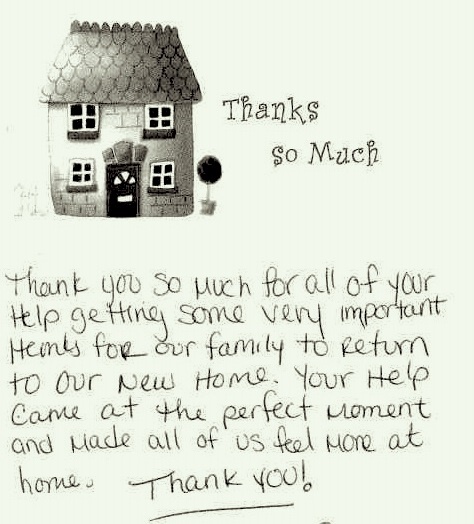 Thanks
so Much
Thank you so Much for all of your
Help getting some very important
Items for our family to Return
to our New Home. Your Help
came at the perfect moment
and made all of us feel More at
home. Thank YOU!